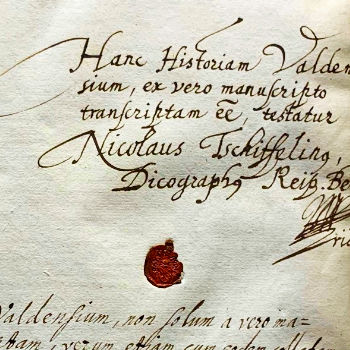 Hanc Historiam Valden
sium, ex vero manuscripto
transcriptam eē, testatur
Nicolaus Tschiffeling,
Dicographꝰ Reip. Be
Valdensium, non solum a vero ma=
verum etiam cum eodem